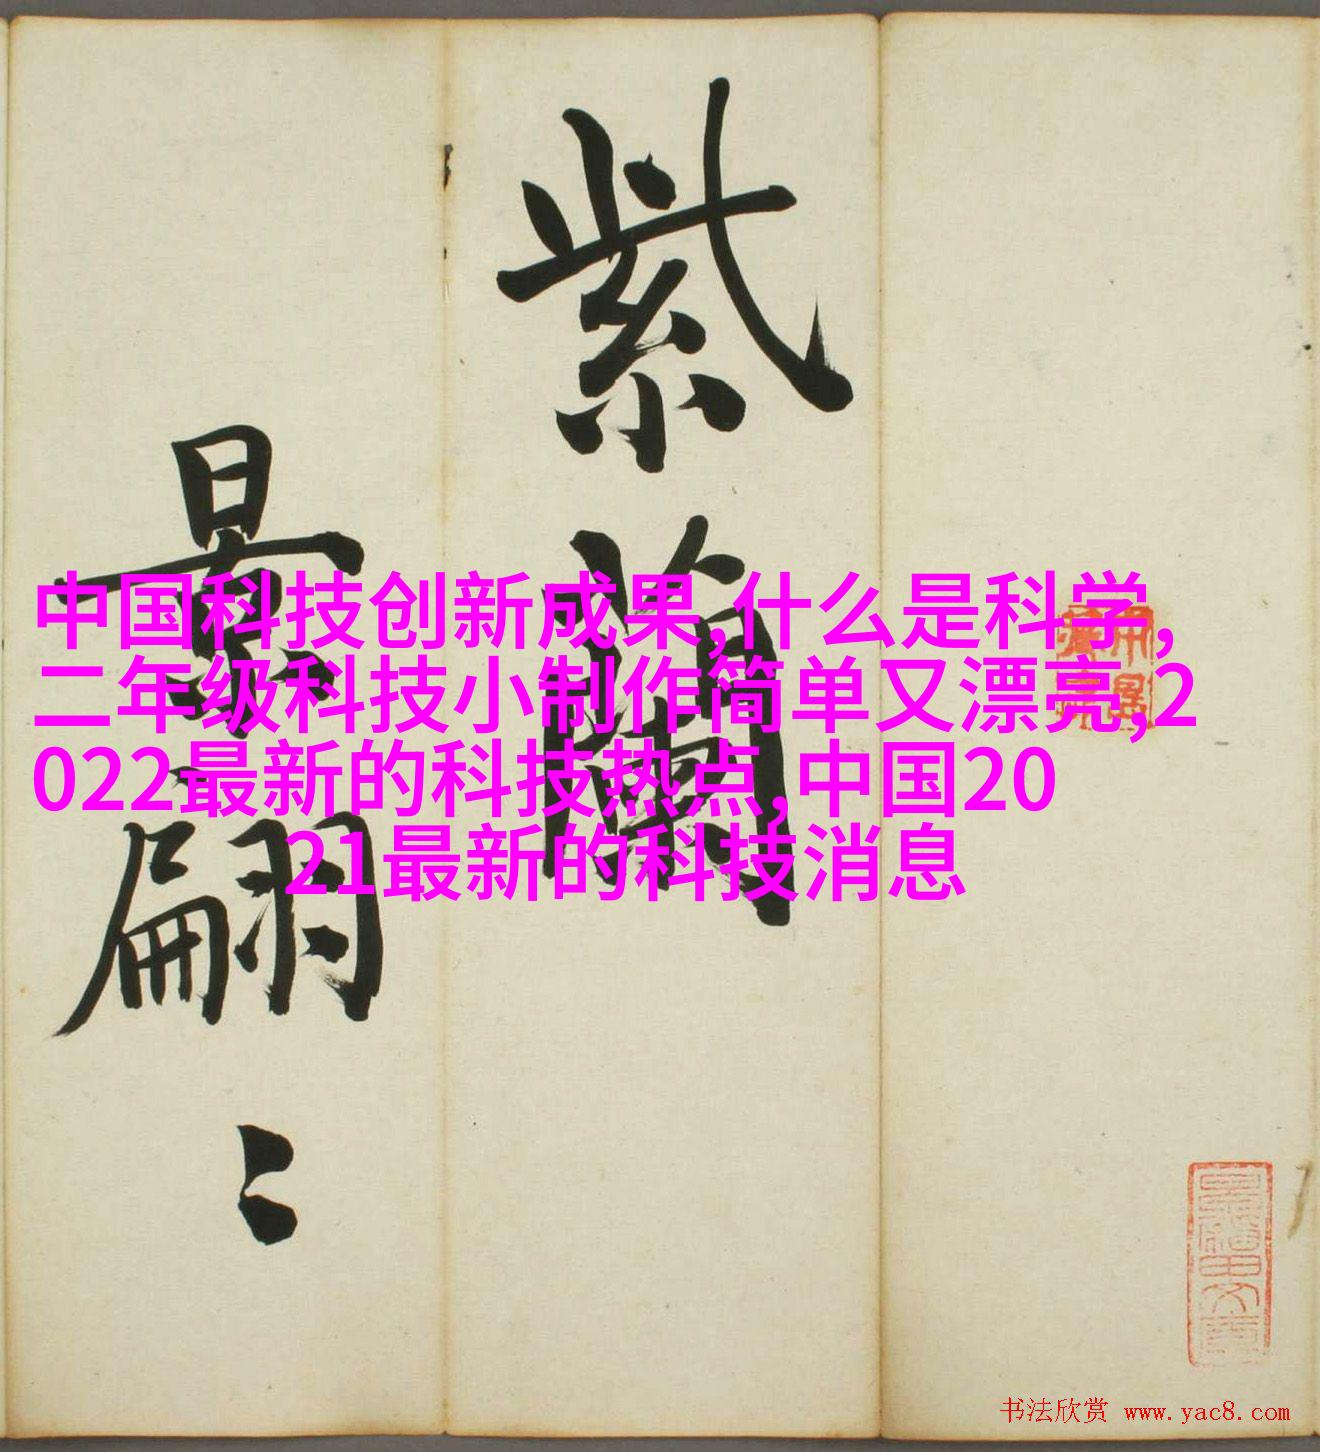 紫蘭
景翩〻
中国科技创新成果,什么是科学,
二年级科技小制作简单又漂亮,2
022最新的科技热点,中国20
21最新的科技消息
书法欣赏 www.yac8.com